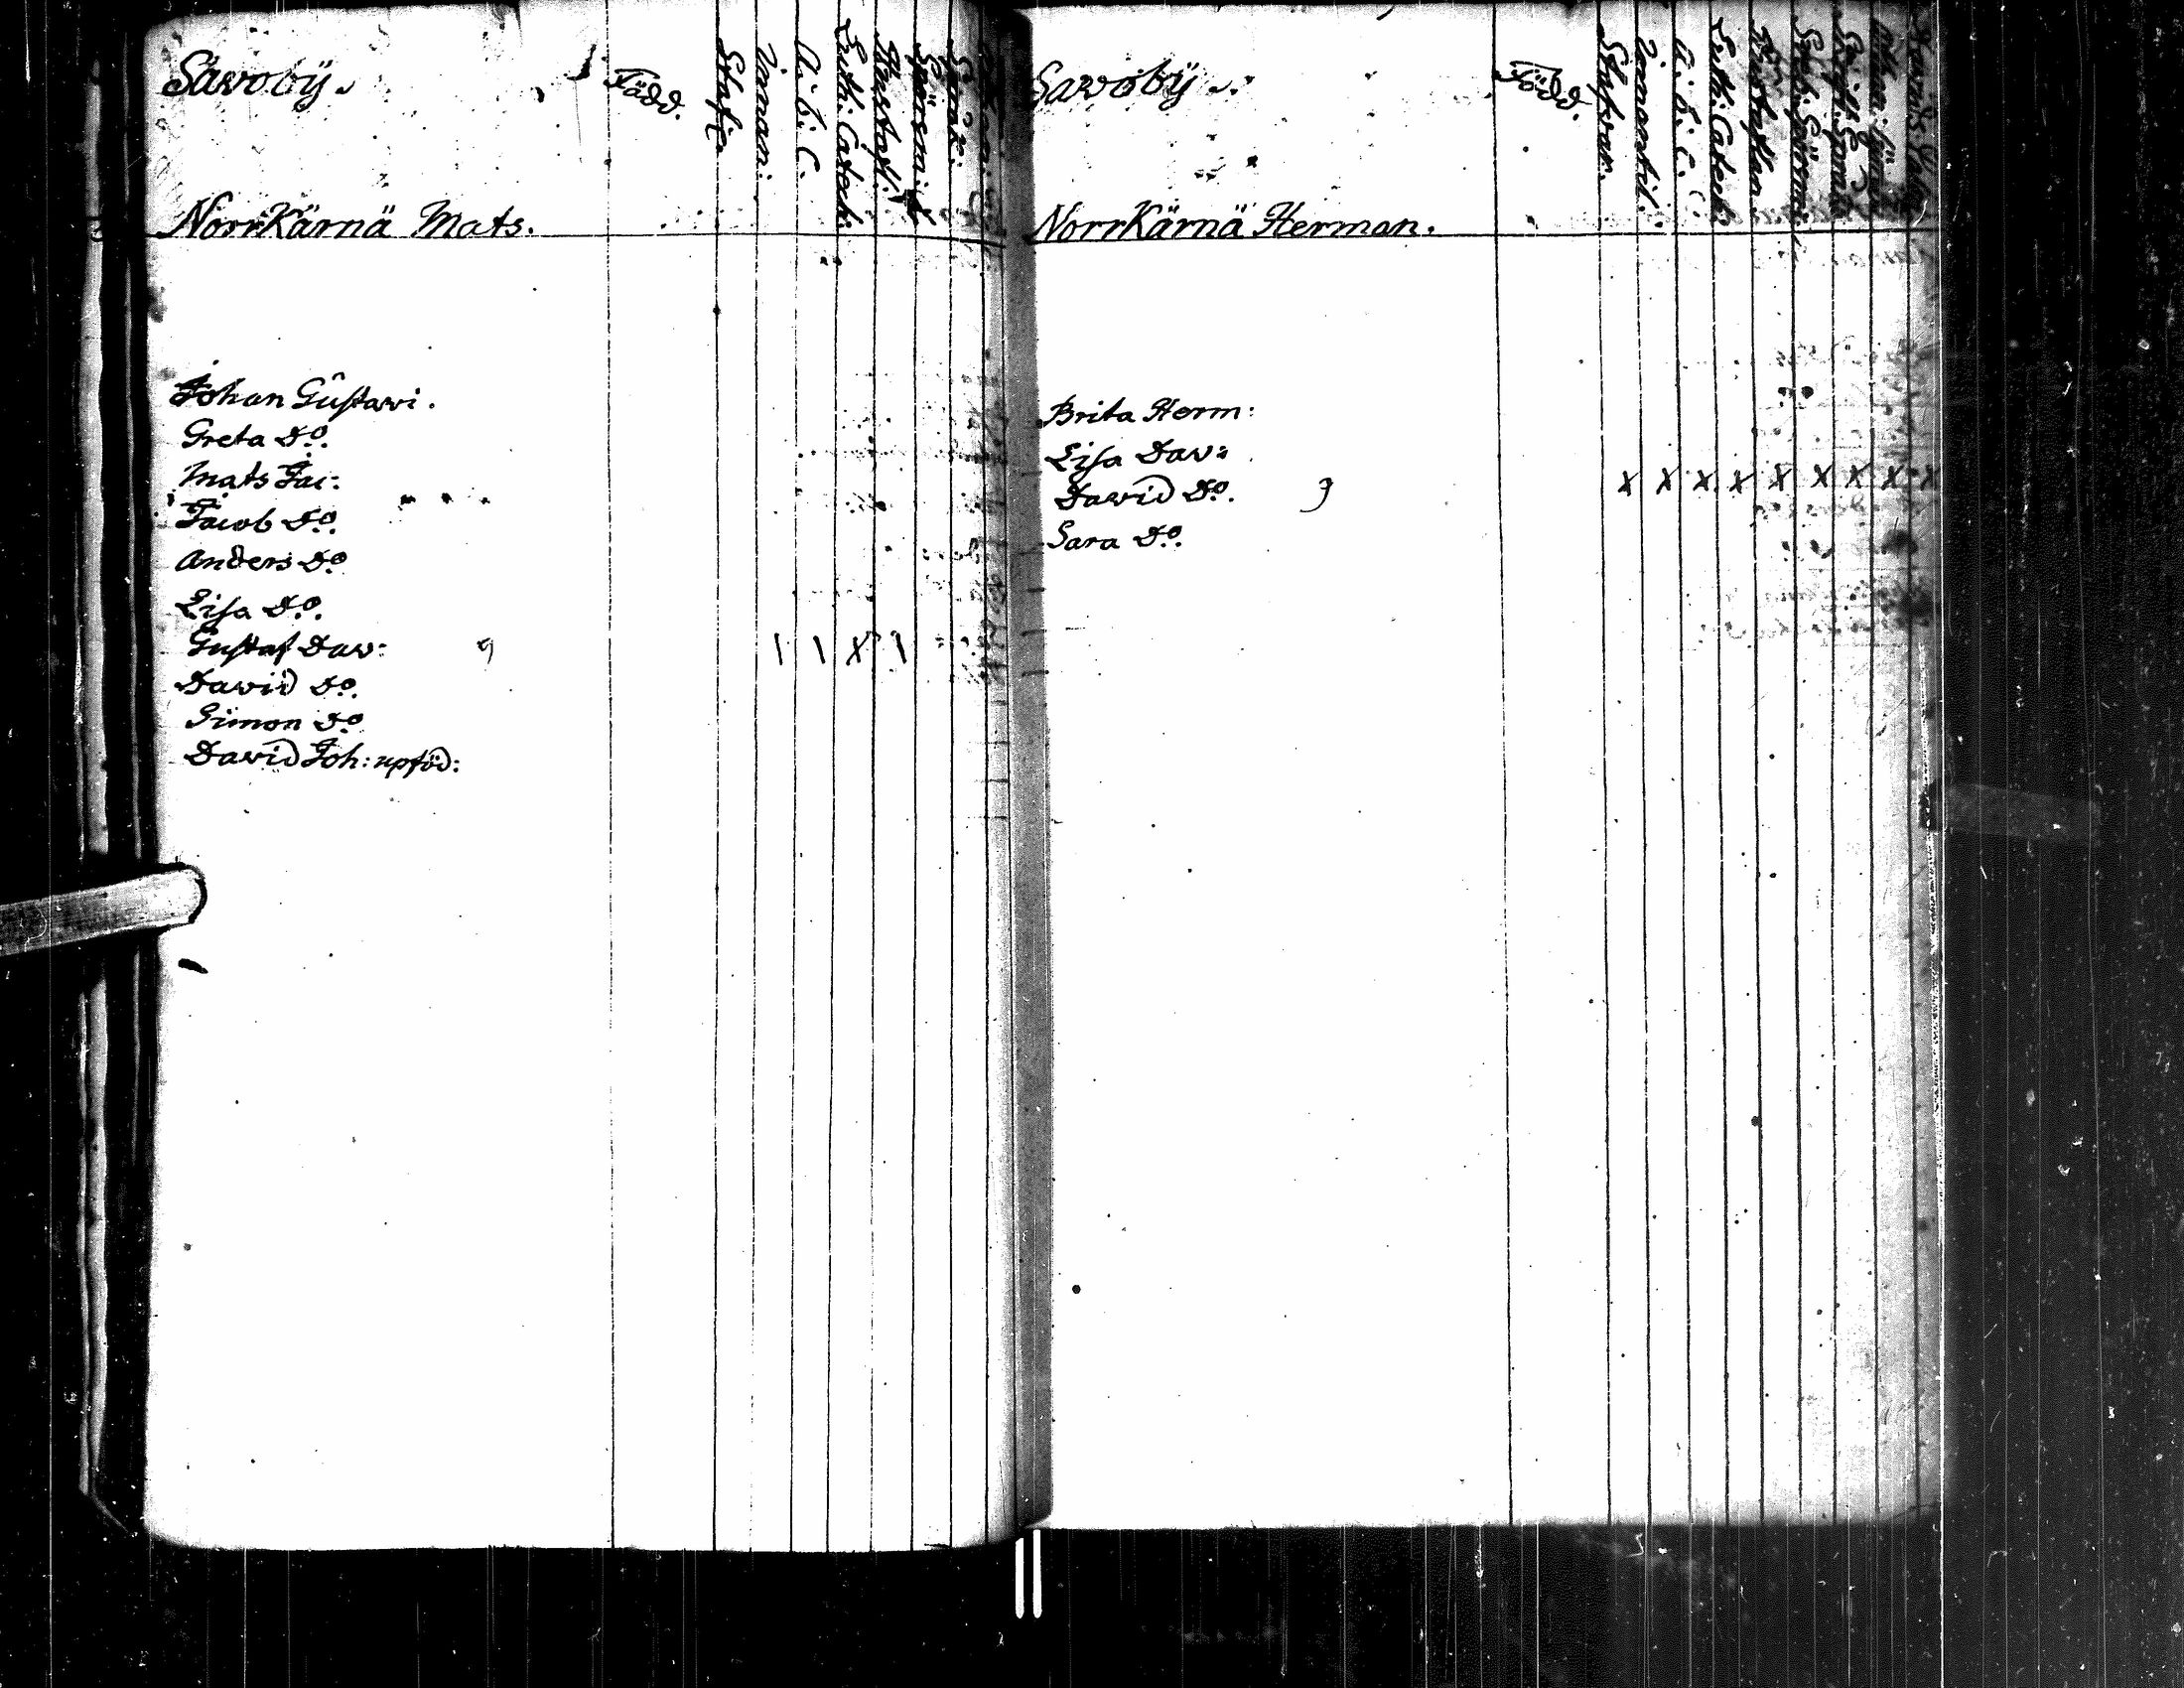 Säwoby.
Född.
Innan:
A. B. C.
Luth: Catech:
NorrKärnä Mats.
Johan Gustawi.
Greta Do.
Mats Jac:
Jacob Do.
Anders Do
Lisa Do.
Gustaf Daw: 9 | | X |
Dawid Do.
Simon Do
Dawid Joh: upföd:
Säwoby.
Född.
Stafwar.
Innantil.
A. B. C.
Luth: Catech:
NorrKärnä Herman.
Brita Herm:
Lisa Daw:
Dawid Do. 9 X X X X X X X X X
Sara Do.